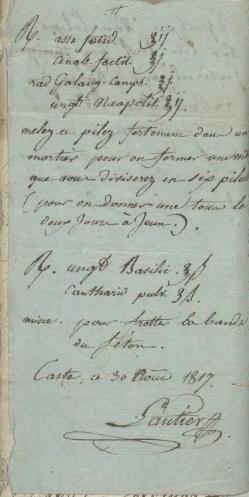 R. assa foetid ʒij
cinab. factit. ʒj.
rad Galang. camph. ʒj
ungt Neapolit. ʒij.
melez et pilez fortement dans un
mortier pour en former une
que vous diviserez en six pilul
(pour en donner une tous le
deux jours à jeun.)
R. ungt Basilic. ʒß
Cantharid pulv. ʒß.
misce. pour frotter la bande
du séton.
ce 30 1817.
Gautier